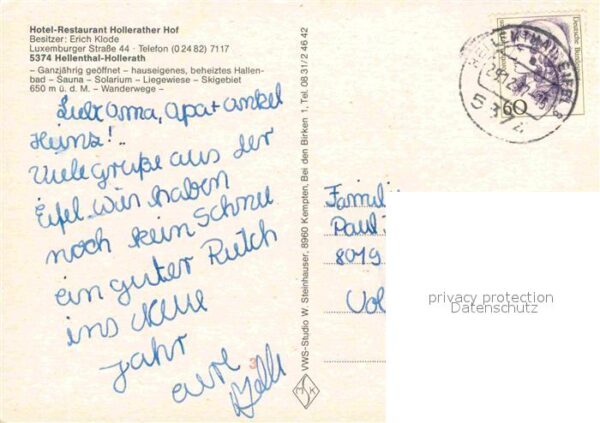 Hotel-Restaurant Hollerather Hof
Besitzer: Erich Klode
Luxemburger Straße 44 · Telefon (0 24 82) 7117
5374 Hellenthal-Hollerath
– Ganzjährig geöffnet – hauseigenes, beheiztes Hallen-
bad – Sauna – Solarium – Liegewiese – Skigebiet
650 m ü. d. M. – Wanderwege –
Liebe Oma, Opa + Onkel
Heinz!
Viele Grüße aus der
Eifel. Wir haben
noch kein Schnee
ein guter Rutch
ins Neue
Jahr
eure
VWS-Studio W. Steinhauser, 8960 Kempten, Bei den Birken 1, Tel. 08 31/2 46 42
Deutsche Bundespost
60
HELLENTHAL, EIFEL
5374
Famili
Paul
8019
Vol
privacy protection
Datenschutz